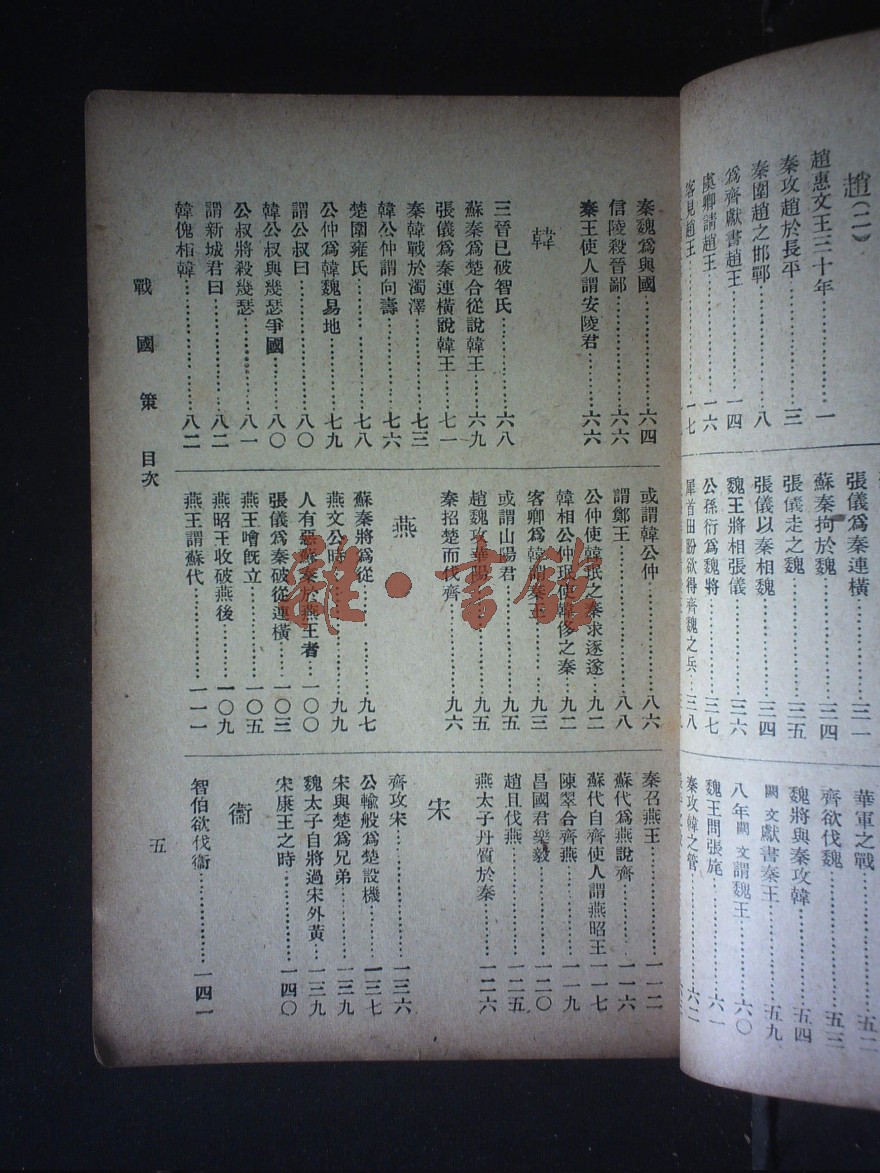 趙(二)
趙惠文王三十年……一
秦攻趙於長平……三
秦圍趙之邯鄲……八
爲齊獻書趙王……一四
虞卿請趙王……一六
客見趙王……一七
張儀爲秦連橫……三一
蘇秦拘於魏……三四
張儀走之魏……三五
張儀以秦相魏……三四
魏王將相張儀……三六
公孫衍爲魏將……三七
犀首田盼欲得齊魏之兵…三八
華軍之戰……五二
齊欲伐魏……五三
魏將與秦攻韓……五四
闕文獻書秦王……五九
八年闕文謂魏王……六〇
魏王問張旄……六一
秦攻韓之管……六二
秦魏爲與國……六四
信陵殺晉鄙……六六
秦王使人謂安陵君……六六
韓
三晉已破智氏……六八
蘇秦爲楚合從說韓王……六九
張儀爲秦連橫說韓王……七一
秦韓戰於濁澤……七三
韓公仲謂向壽……七六
楚圍雍氏……七八
公仲爲韓魏易地……七九
謂公叔曰……八〇
韓公叔與幾瑟爭國……八〇
公叔將殺幾瑟……八一
謂新城君曰……八二
韓傀相韓……八二
或謂韓公仲……八六
謂鄭王……八八
公仲使韓珉之秦求逐遂…九二
韓相公仲珉使韓侈之秦…九二
客卿爲韓謂秦王……九三
或謂山陽君……九五
趙魏攻華陽……九五
秦招楚而伐齊……九六
燕
蘇秦將爲從……九七
燕文公時……九九
人有惡蘇秦於燕王者…一〇〇
張儀爲秦破從連橫……一〇三
燕王噲旣立……一〇五
燕昭王收破燕後……一〇九
燕王謂蘇代……一一一
秦召燕王……一一二
蘇代爲燕說齊……一一六
蘇代自齊使人謂燕昭王…一一七
陳翠合齊燕……一一九
昌國君樂毅……一二〇
趙且伐燕……一二五
燕太子丹質於秦……一二六
宋
齊攻宋……一三六
公輸般爲楚設機……一三七
宋與楚爲兄弟……一三九
魏太子自將過宋外黃…一三九
宋康王之時……一四〇
衞
智伯欲伐衞……一四一
戰國策 目次
五
雜·書館